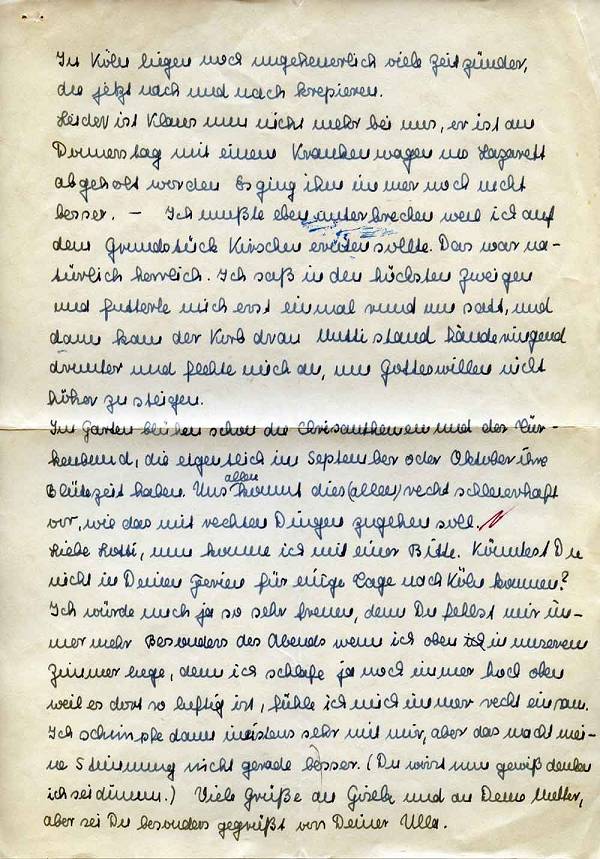 In Köln liegen noch ungeheuerlich viele Zeitzünder,
die jetzt nach und nach krepieren.
Leider ist Klaus nun nicht mehr bei uns, er ist am
Donnerstag mit einem Krankenwagen ins Lazarett
abgeholt worden Es ging ihm immer noch nicht
besser. – Ich mußte eben unterbrechen weil ich auf
dem Grundstück Kirschen ernten sollte. Das war na-
türlich herrlich. Ich saß in den höchsten Zweigen
und futterte mich erst einmal rund um satt, und
dann kam der Korb dran Mutti stand händeringend
drunter und flehte mich an, um Gotteswillen nicht
höher zu steigen.
Im Garten blühen schon die Chrisanthemen und der Tür-
kenbund, die eigentlich im September oder Oktober ihre
Blütezeit haben. Uns allen kommt dies (allen) recht schleierhaft
vor, wie das mit rechten Dingen zugehen soll.
Liebe Lotti, nun komme ich mit einer Bitte. Könntest Du
nicht in Deinen Ferien für einige Tage nach Köln kommen?
Ich würde mich ja so sehr freuen, denn Du fehlst mir im-
mer mehr Besonders des Abends wenn ich oben in unserem
Zimmer liege, denn ich schlafe ja noch immer hoch oben
weil es dort so luftig ist, fühle ich mich immer recht einsam.
Ich schimpfe dann meistens sehr mit mir, aber das macht mei-
ne Stimmung nicht gerade besser. (Du wirst nun gewiß denken
ich sei dumm.) Viele Grüße an Gisela und an Deine Mutter,
aber sei Du besonders gegrüßt von Deiner Ulla.